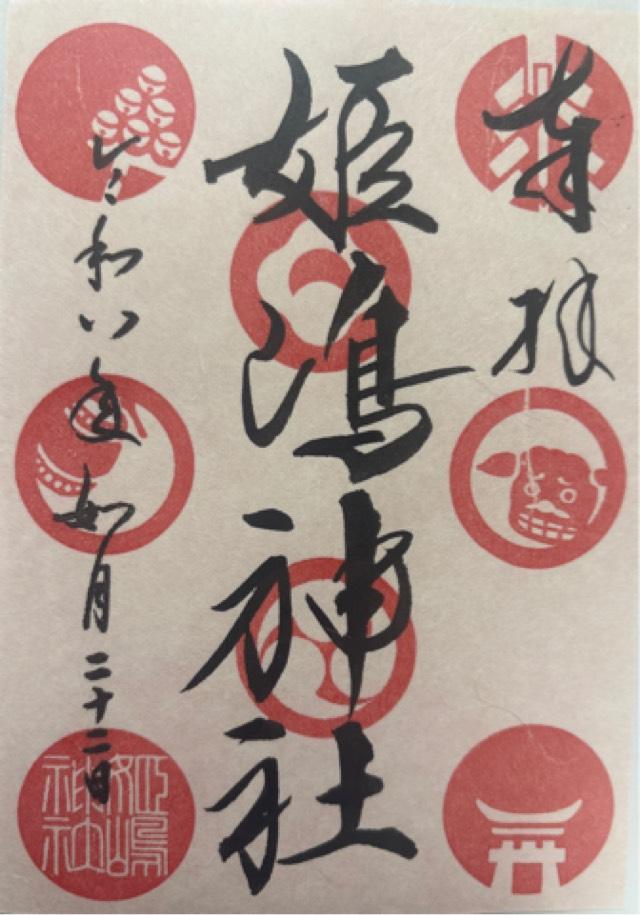 奉拝
姫嶋神社
令和八年如月二十二日
姫嶋神社